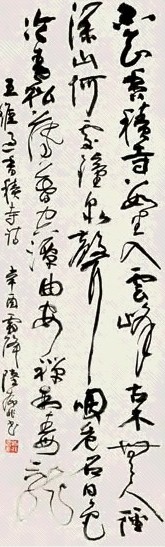 不知香積寺數里入雲峰古木無人徑
深山何處鐘泉聲咽危石日色
冷青松薄暮空潭曲安禪制毒龍
王維過香積寺詩 辛酉霜降 陸